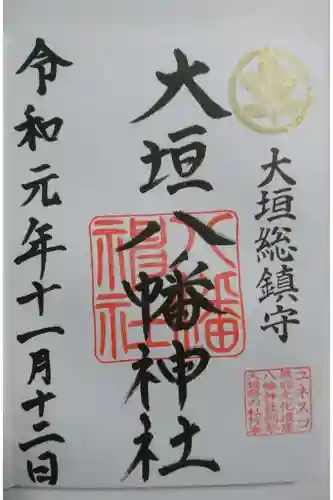 大垣総鎮守
大垣八幡神社
八幡神社
ユネスコ
無形文化遺産
八幡神社例祭
大垣祭の軕行事
令和元年十一月十二日